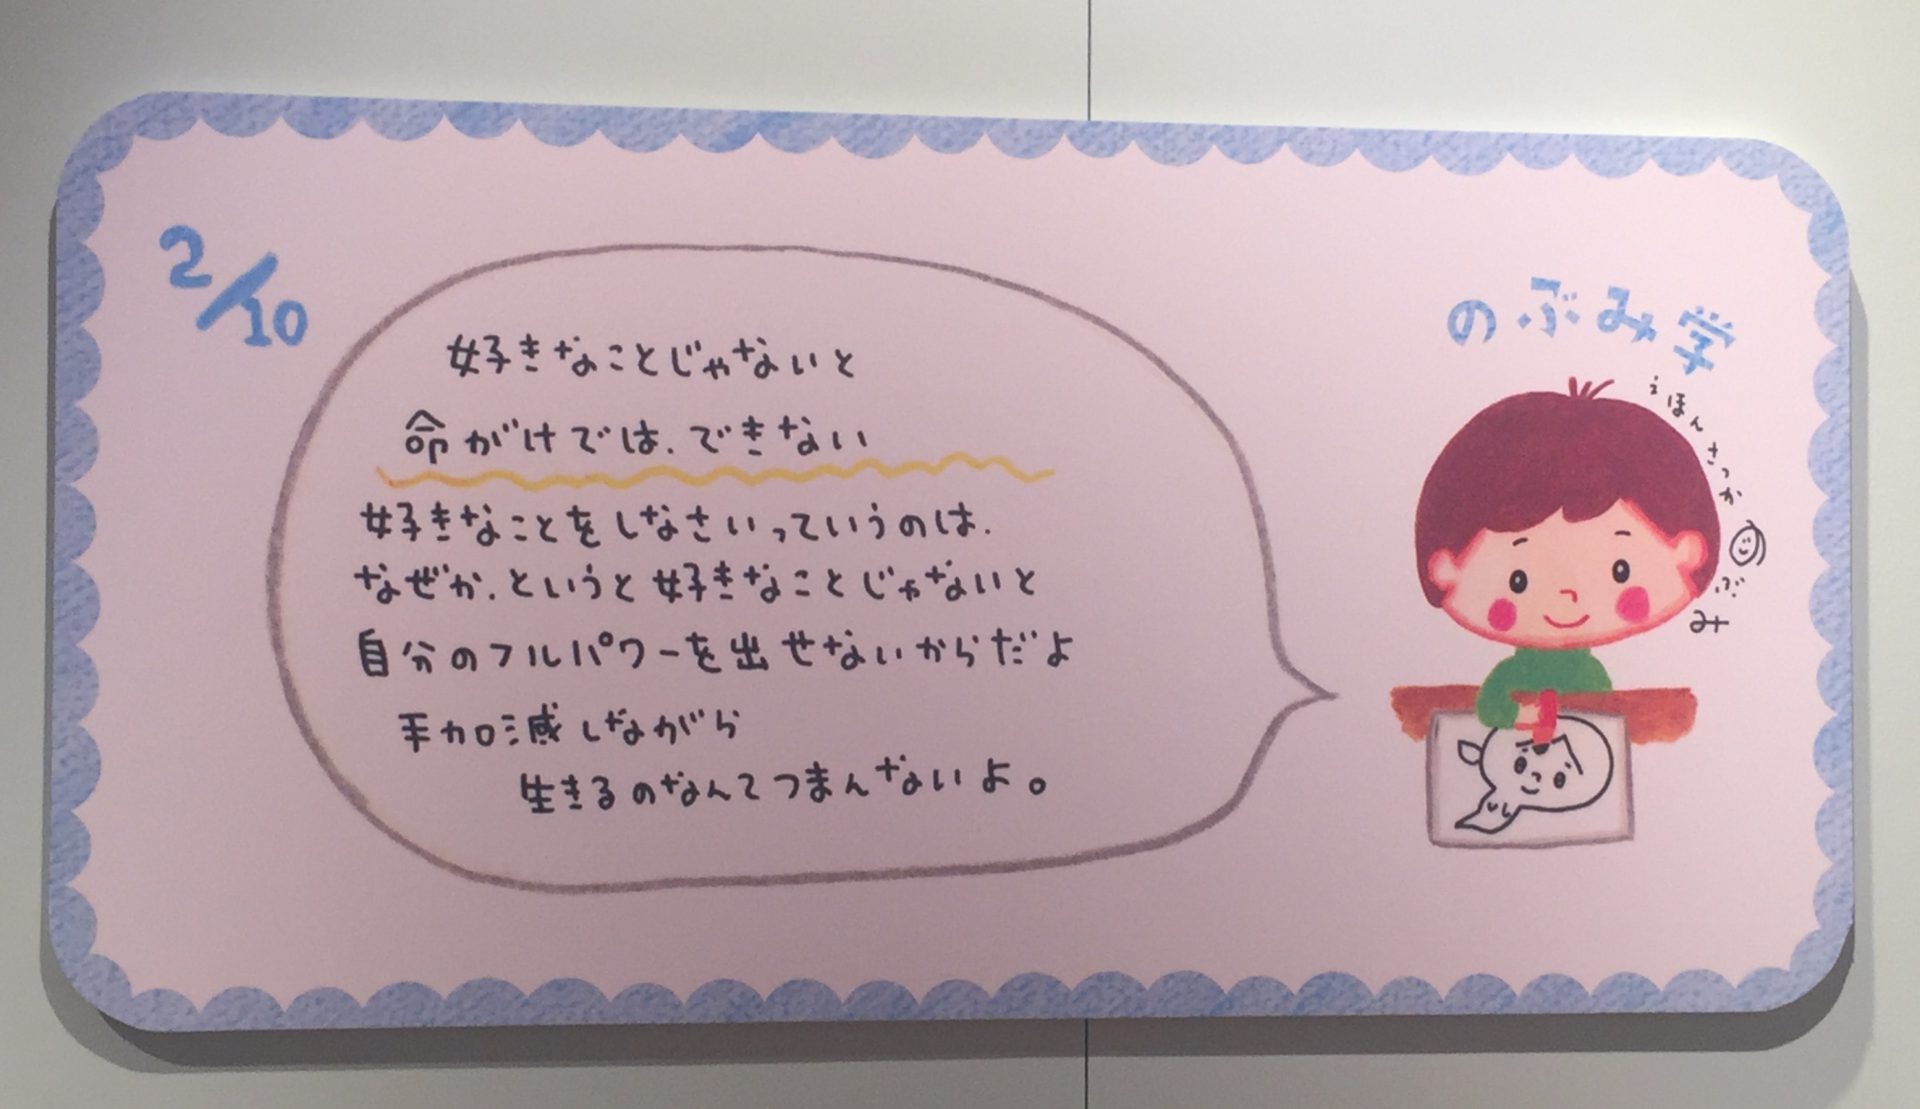 2/10
好きなことじゃないと
命がけでは.できない
好きなことをしなさいっていうのは.
なぜか.というと好きなことじゃないと
自分のフルパワーを出せないからだよ
手加減しながら
生きるのなんてつまんないよ。
のぶみ学
えほんさっか のぶみ